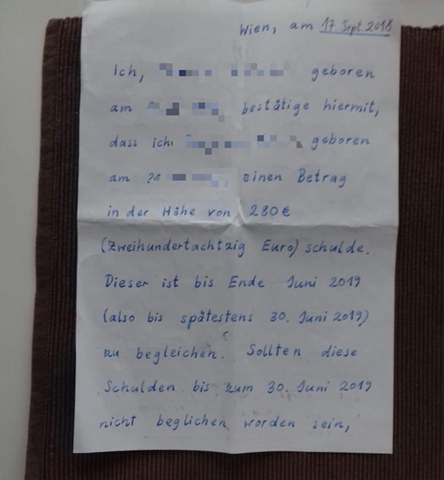 Wien, am 17 Sept 2018
Ich, geboren
am bestätige hiermit,
dass ich geboren
am 20 einen Betrag
in der Höhe von 280€
(zweihundertachtzig Euro) schulde.
Dieser ist bis Ende Juni 2019
(also bis spätestens 30. Juni 2019)
zu begleichen. Sollten diese
Schulden bis zum 30. Juni 2019
nicht beglichen worden sein,